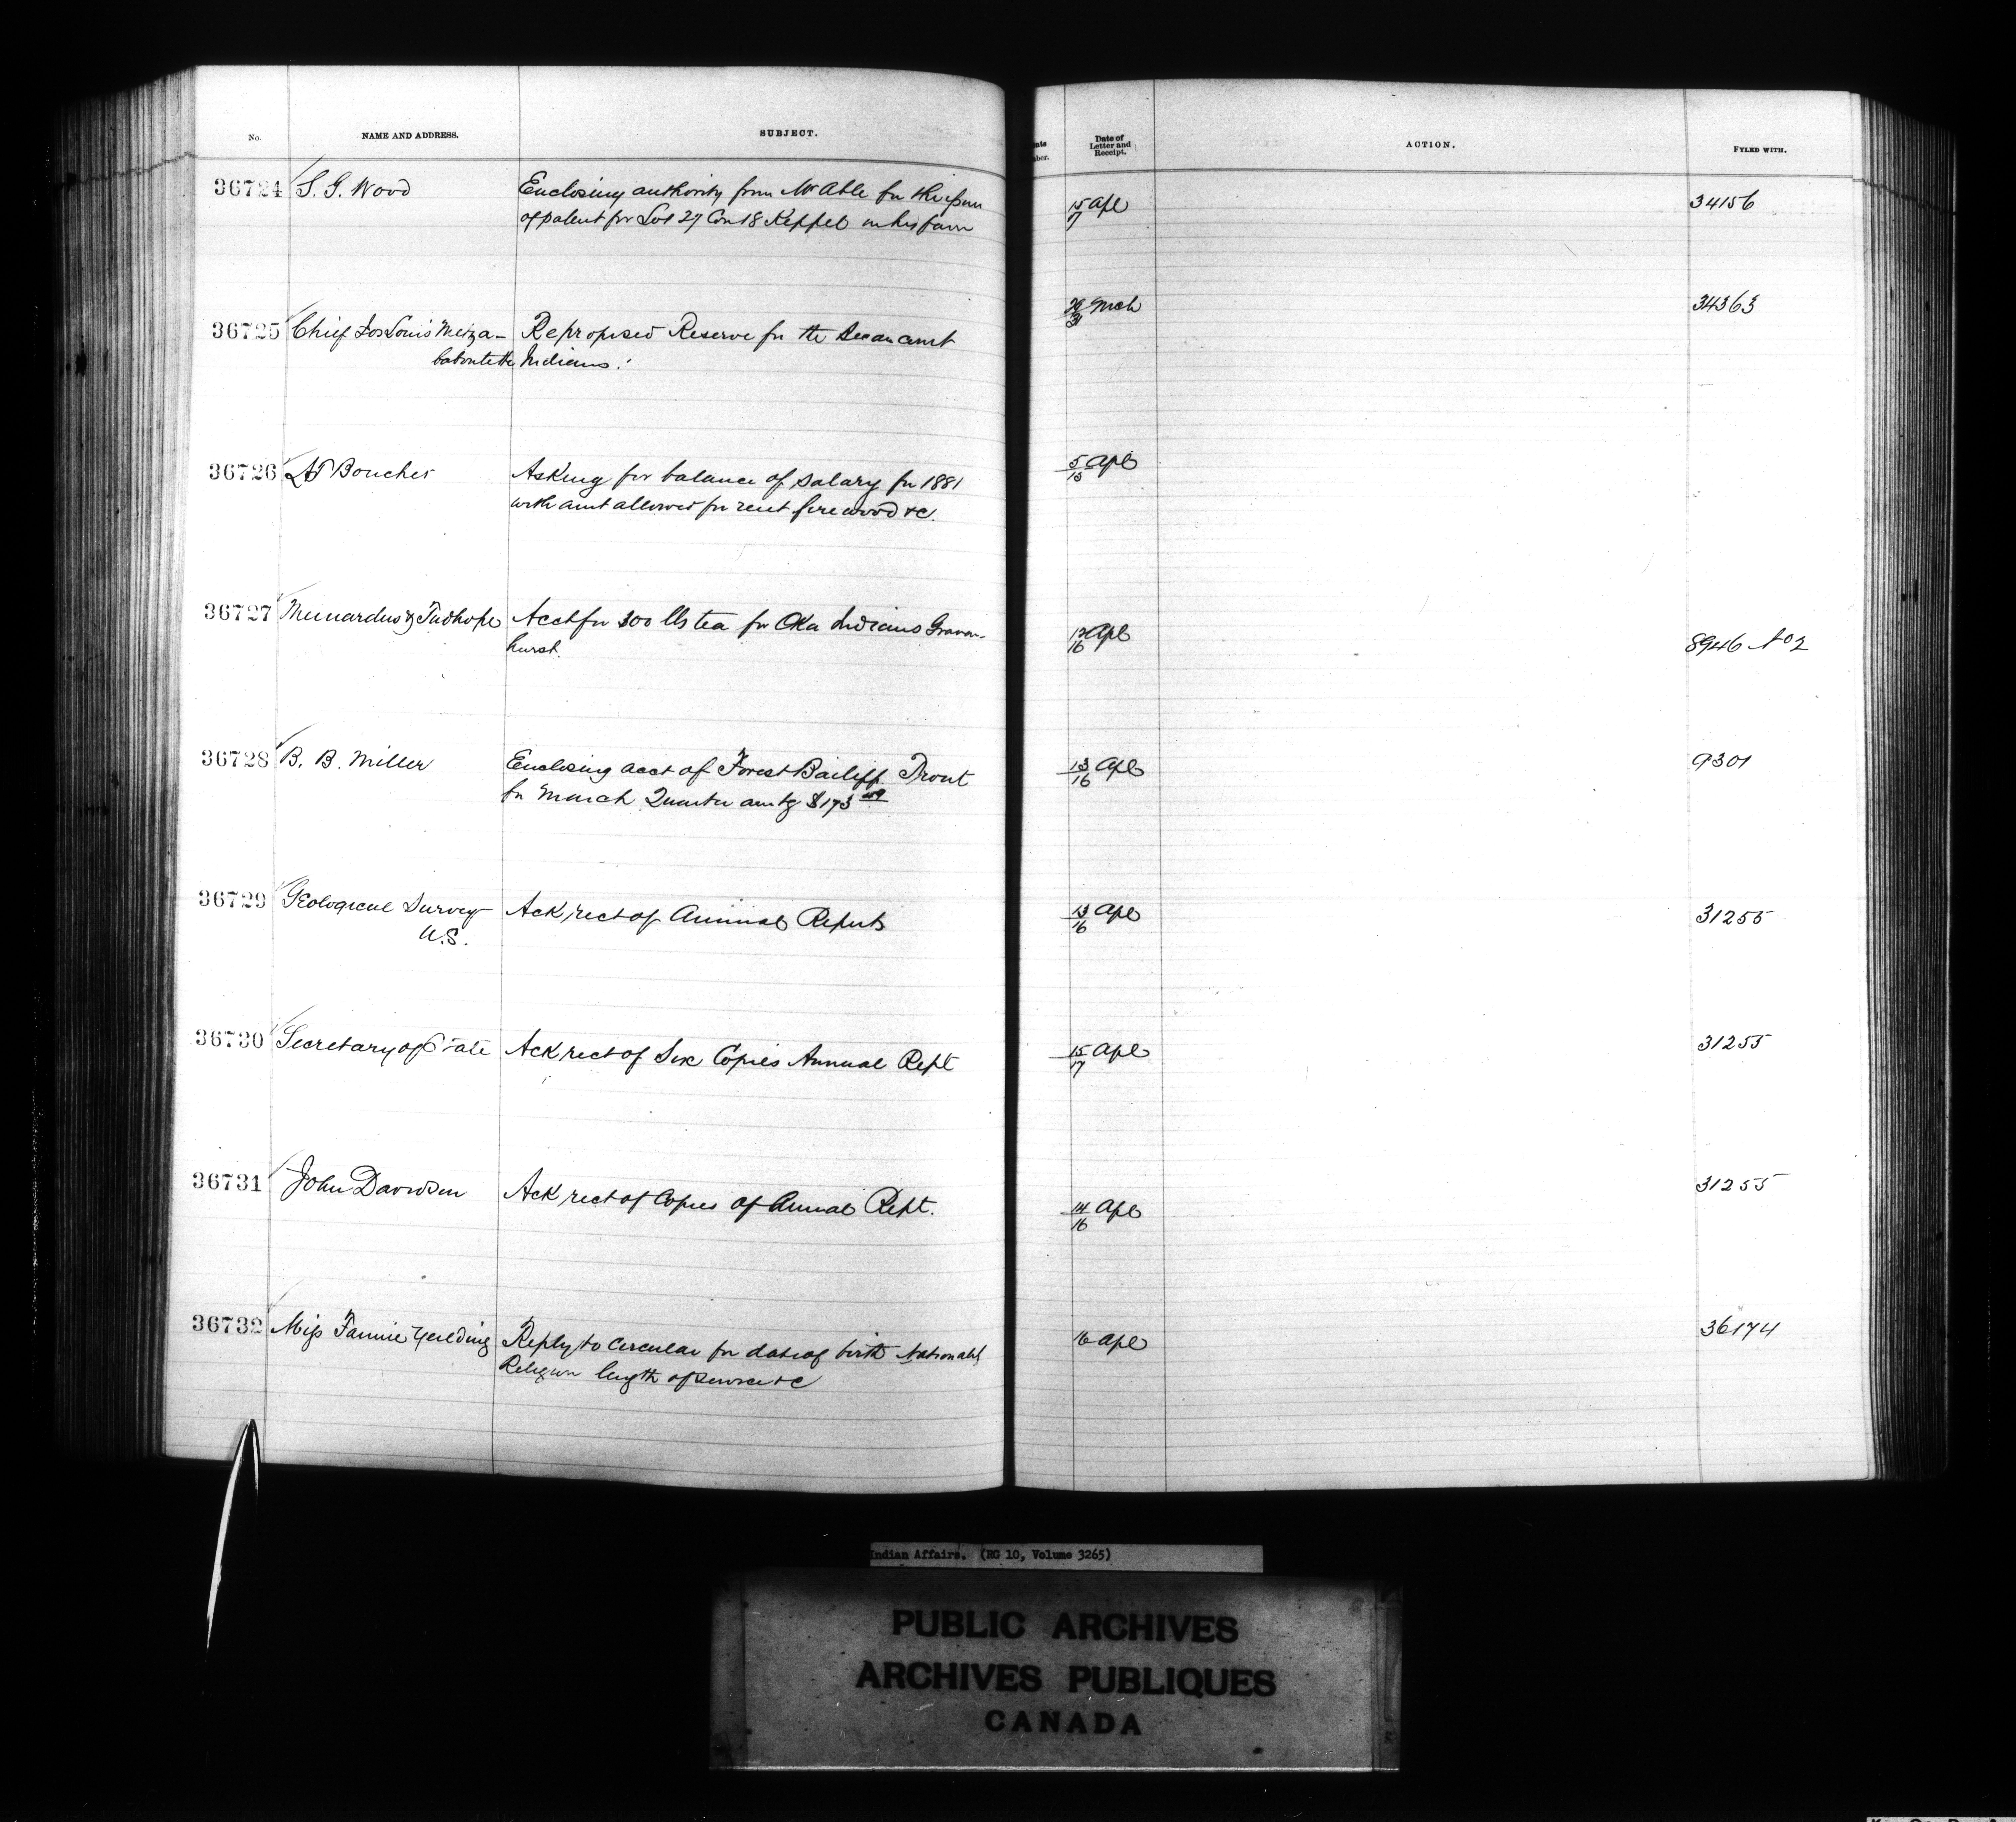 No.
NAME AND ADDRESS.
SUBJECT.
Date of
Letter and
Receipt.
ACTION.
FYLED WITH.
36724 S. G. Wood Enclosing authority from Mr Able for the issue 15/17 Apl 34156
of patent for Lot 27 Con 18 Keppel in his favor
36725 Chief Jos Louis Re proposed Reserve for the 31 Mch 34363
Indians.
36726 Boucher Asking for balance of salary for 1881 5/15 Apl
with amt allowed for rent firewood &c.
36727 & Tudhope Acct for 300 lbs tea for Oka Indians Graven- 12/16 Apl 8946 No 2
hurst.
36728 B. B. Miller Enclosing acct of Forest Bailiff Trout 13/16 Apl 9301
for March Quarter amtg $173 49
36729 Geological Survey Ack rect of Annual Reports 13/16 Apl 31255
U.S.
36730 Secretary of State Ack rect of Six Copies Annual Rept 15/17 Apl 31255
36731 John Davidson Ack rect of Copies of Annual Rept. 14/16 Apl 31255
36732 Miss Fannie Yeilding Reply to circular for date of birth 16 Apl 36174
Religion length of service &c
Indian Affairs. (RG 10, Volume 3265)
PUBLIC ARCHIVES
ARCHIVES PUBLIQUES
CANADA